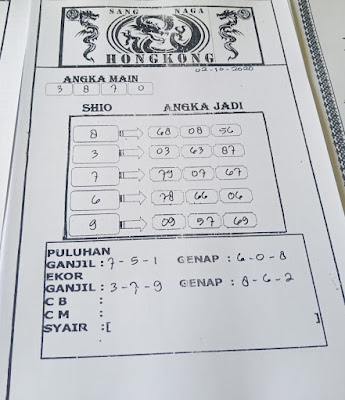 SANG NAGA
HONGKONG
02-10-2020
ANGKA MAIN
3 8 7 0
SHIO ANGKA JADI
8 68 08 56
3 03 63 87
7 79 07 67
6 78 66 06
9 09 57 69
PULUHAN
GANJIL : 7-5-1 GENAP : 6-0-8
EKOR
GANJIL : 3-7-9 GENAP : 8-6-2
C B :
C M :
SYAIR :[ ]